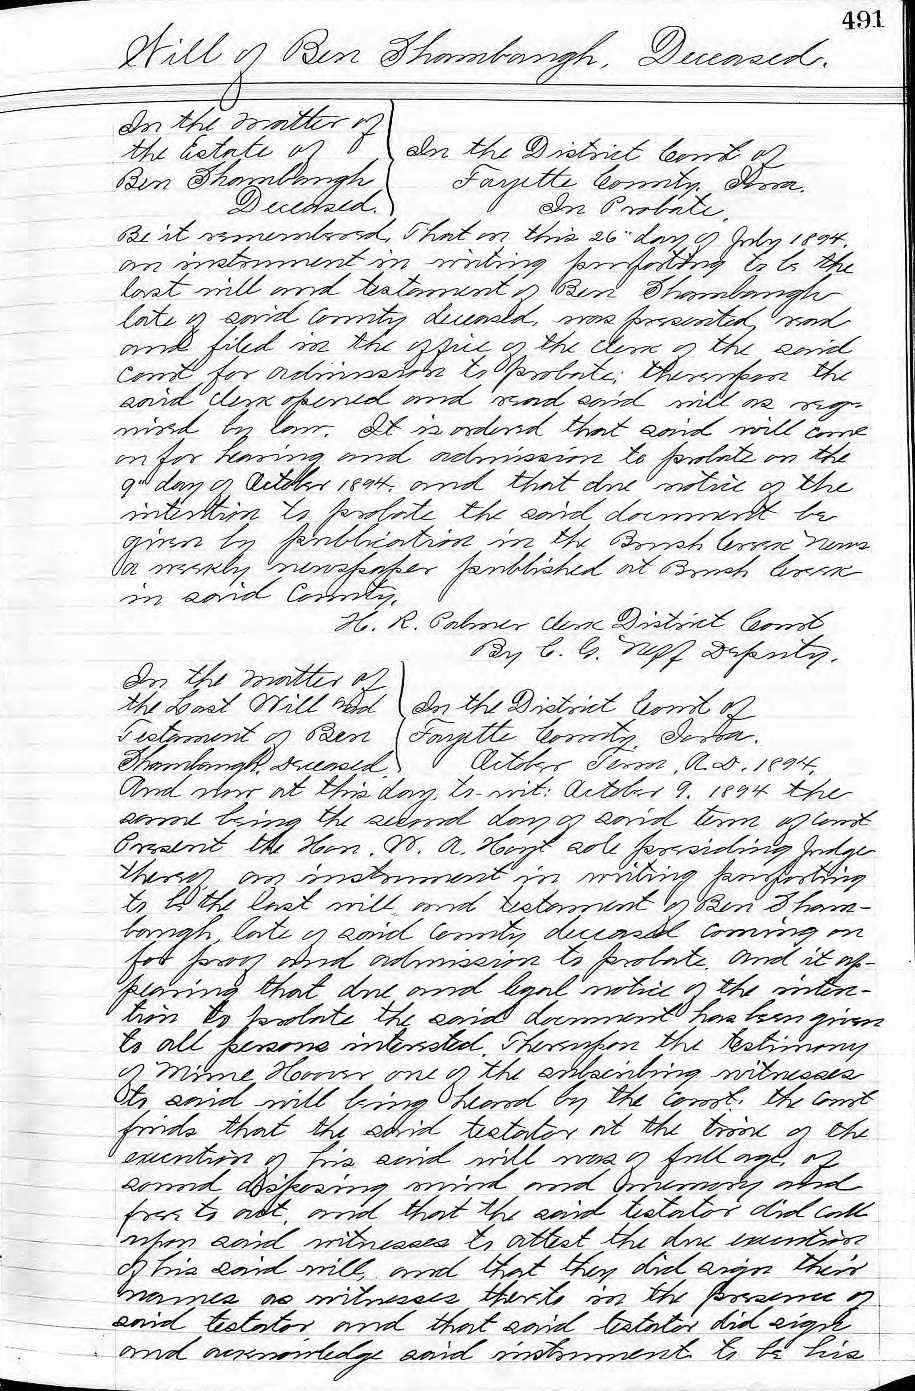 491
Will of Ben Shambaugh, Deceased.
In the matter of
the Estate of
Ben Shambaugh
Deceased.
In the District Court of
Fayette County, Iowa.
In Probate.
Be it remembered, That on this 26" day of July 1894.
an instrument in writing purporting to be the
last will and testament of Ben Shambaugh
late of said County deceased, was presented, read
and filed in the office of the clerk of the said
court for admission to probate; thereupon the
said clerk opened and read said will as req-
uired by law. It is ordered that said will come
on for hearing and admission to probate on the
9" day of October 1894, and that due notice of the
intention to probate the said document be
given by publication in the Brush Creek News
a weekly newspaper published at Brush Creek
in said County.
H. R. Palmer Clerk District Court
By C. G. Neff Deputy.
In the matter of
the Last Will and
Testament of Ben
Shambaugh, Deceased.
In the District Court of
Fayette County, Iowa.
October Term, A.D. 1894.
And now at this day, to-wit: October 9, 1894 the
same being the second day of said term of court
Present the Hon. W. A. Hoyt sole presiding Judge
thereof, an instrument in writing purporting
to be the last will and testament of Ben Sham-
baugh, late of said County deceased coming on
for proof and admission to probate, and it ap-
pearing that due and legal notice of the inten-
tion to probate the said document has been given
to all persons interested. Thereupon the testimony
of Mime Hoover one of the subscribing witnesses
to said will being heard by the court, the court
finds that the said testator at the time of the
execution of his said will was of full age, of
sound disposing mind and memory and
free to act, and that the said testator did call
upon said witnesses to attest the due execution
of his said will, and that they did sign their
names as witnesses thereto in the presence of
said testator and that said testator did sign
and acknowledge said instrument to be his